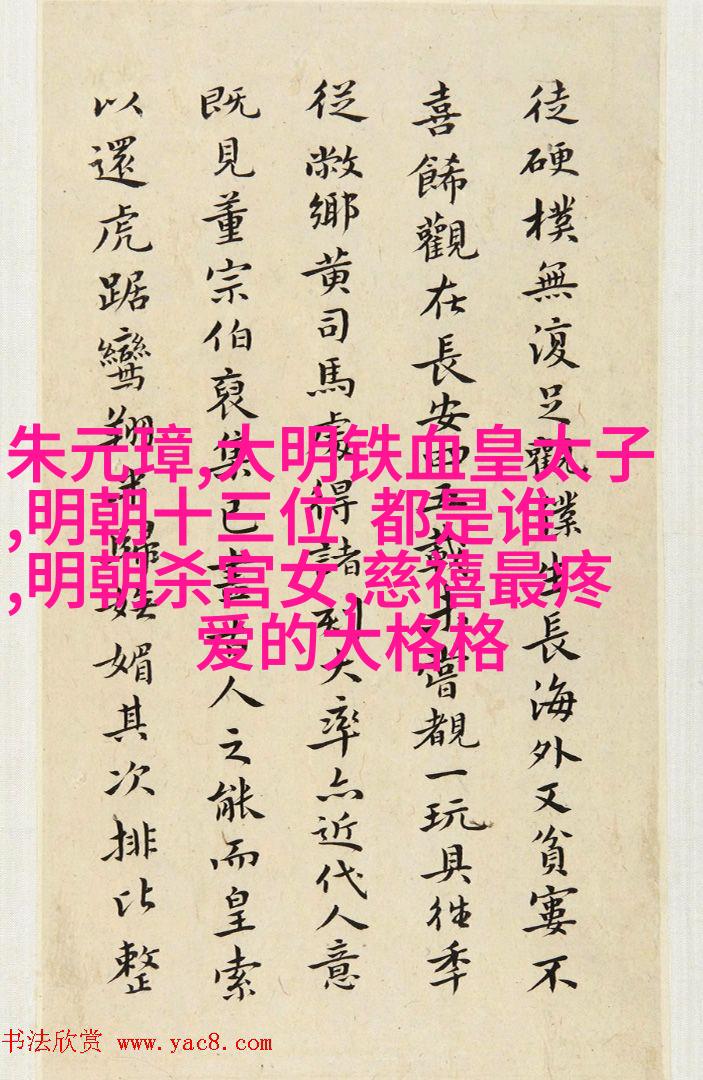 徒硬樸無復足觀樸生長海外又貧寠不
喜餙觀在長安四五嘗覩一玩具徃季
從敝鄉黄司馬處得諸列大率亦近代人意
既見董宗伯裒集已人之能而皇索
以還虎踞鸞翔歸媚其次排比整
朱元璋,大明铁血皇太子
,明朝十三位 都是谁
,明朝杀宫女,慈禧最疼
爱的大格格
书法欣赏 www.yac8.com